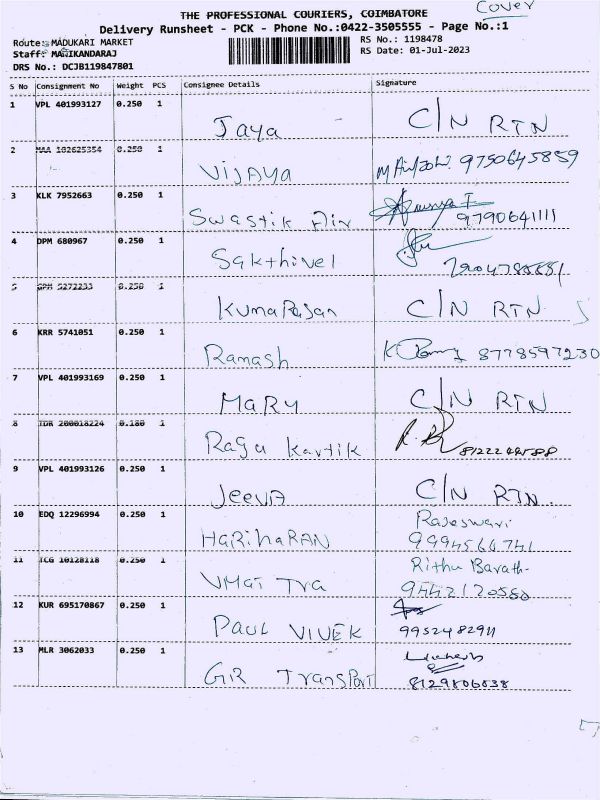 Cover
THE PROFESSIONAL COURIERS, COIMBATORE
Delivery Runsheet - PCK - Phone No.:0422-3505555 - Page No.:1
Route: MADUKARI MARKET
RS No.: 1198478
Staff: MANIKANDARAJ
RS Date: 01-Jul-2023
DRS No.: DCJB119847801
S No Consignment No Weight PCS Consignee Details Signature
1 VPL 401993127 0.250 1 Jaya C/N RTN
2 MAA 102625354 0.250 1 Vijaya 9750645859
3 KLK 7952663 0.250 1 Swastik Air 9790641111
4 DPM 680967 0.250 1 Sakthivel
5 GPM 5272233 0.250 1 KumaRajan C/N RTN
6 KRR 5741051 0.250 1 Ramash 8778597230
7 VPL 401993169 0.250 1 MaRy C/N RTN
8 IDR 200018224 0.180 1 Ragu Kartik
9 VPL 401993126 0.250 1 Jeeva C/N RTN
10 EDQ 12296994 0.250 1 HaRihaRAN Rajeswari
9994566741
11 TCG 10128118 0.250 1 Rithu Barath
9442120580
12 KUR 695170867 0.250 1 PAUL VIVEK
9952482911
13 MLR 3062033 0.250 1 GR TransPort
8129806038